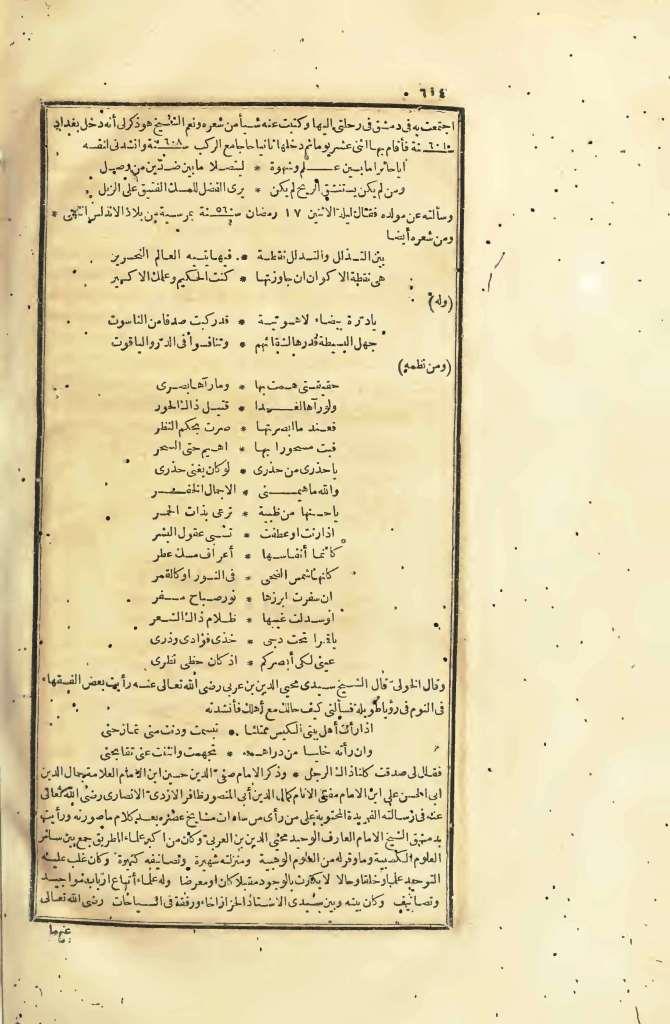 ٦١٤
اجتمعت به في دمشق في رحلتي اليها وكتبت عنه شيأ من شعره ونعم الشيخ هو ذكر لي أنه دخل بغداد
سنة ٦٠١ فأقام بها اثنى عشر يوما ثم دخلها ثانيا حاجا مع الركب سنة ٦٠٨ وأنشدني لنفسه
أيا حائرا ما بين عــلم وشهوة * ليتصلا ما بين ضدين من وصل
ومن لم يكن يستنشق الريح لم يكن * يرى الفضل للمسك الفتيق على الزبل
وسألته عن مولده فقال ليلة الاثنين ١٧ رمضان سنة ٥٦٠ بمرسية من بلاد الاندلس انتهى *
ومن شعره أيضا
بين التــذلل والتــدلل نقطــة * فيها يتــيه العالم النحرير
هي نقطة الاكوان ان جاوزتها * كنت الحكيم وعلمك الاكسير
(وله)
يا درة بيضاء لاهــوتيــة * قد ركبت صدفا من الناسوت
جهل البسيطة قدرها لشقائهم * وتنافسوا في الدر والياقوت
(ومن نظمه)
حقيقــتي همــت بها * وما رآها بصرى
ولو رآها لغــــدا * قتيــل ذاك الحور
فعــند ما أبصرتــها * صرت بحكم النظر
فبت مسحورا بــها * أهــيم حتى السحر
يا حذرى من حذرى * لو كان يغنى حذرى
والله ما هيمــــنى * الا جمال الخفــــر
يا حســنها من ظبية * ترعى بذات الخمــر
اذا رنت أو عطفت * تســبى عقول البشر
كأنما أنفاســـها * أعراف مسك عطر
كأنها شمس الضحى * في النــور أو كالقمر
ان سفرت أبرزها * نور صباح مســفر
أو سدلت غيبها * ظــلام ذاك الشــعر
يا قمرا تحت دجى * خذى فؤادى وذرى
عيني لكي أبصركم * اذ كان حظي نظرى
وقال الخولى قال الشيخ سيدى محيي الدين بن عربي رضي الله تعالى عنه رأيت بعض الفقهاء
في النوم في رؤيا طويلة فسألني كيف حالك مع أهلك فأنشدته
اذا رأت أهل بيتي الكيس ممتلئا * تبسمت ودنت مني تمازحني
وان رأته خاليا من دراهمه * تجهمت وانثنت عني تقابحني
فقال لى صدقت كلنا ذاك الرجل * وذكر الامام صفي الدين حسين ابن الامام العلامة جمال الدين
أبي الحسن على ابن الامام مفتى الانام كمال الدين أبي المنصور ظافر الازدى الانصارى رضي الله تعالى
عنه في رسالته الفريدة المحتوية على من رأى من سادات مشايخ عصره بعد كلام ما صورته ورأيت
بدمشق الشيخ الامام العارف الوحيد محيي الدين بن العربي وكان من أكبر علماء الطريق جمع بين سائر
العلوم الكسبية وما وقر له من العلوم الوهبية ومنزلته شهيرة وتصانيفه كثيرة وكان غلب عليه
التوحيد علما وخلقا وحالا لا يكترث بالوجود مقبلا كان أو معرضا وله علماء أتباع أرباب مواجيد
وتصانيف وكان بينه وبين سيدى الاستاذ الخراز اخاء ورفقة في السياحات رضي الله تعالى
عنهما